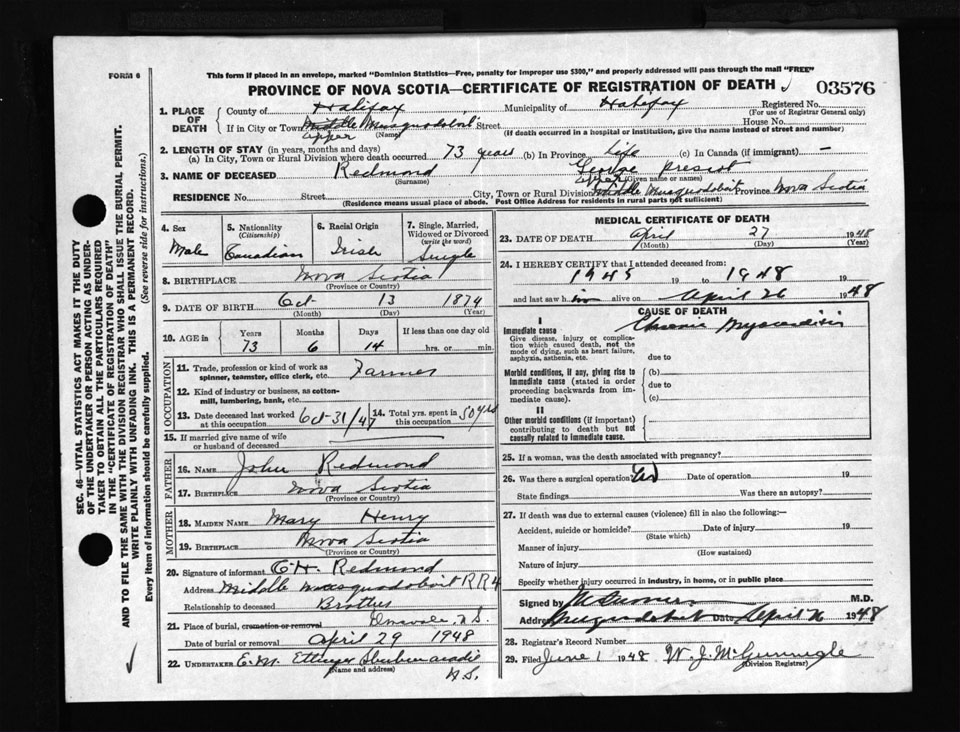 FORM 6
This form if placed in an envelope, marked "Dominion Statistics—Free, penalty for improper use $300," and properly addressed will pass through the mail "FREE"
PROVINCE OF NOVA SCOTIA—CERTIFICATE OF REGISTRATION OF DEATH
03576
1. PLACE OF DEATH
County of Halifax Municipality of Halifax Registered No.
(For use of Registrar General only)
If in City or Town Middle Musquodoboit Street House No.
Upper (Name) (If death occurred in a hospital or institution, give the name instead of street and number)
2. LENGTH OF STAY (in years, months and days)
(a) In City, Town or Rural Division where death occurred 73 years (b) In Province Life (c) In Canada (if immigrant) —
3. NAME OF DECEASED Redmond
(Surname) (Given name or names)
RESIDENCE No. Street City, Town or Rural Division Upper Middle Musquodoboit Province Nova Scotia
(Residence means usual place of abode. Post Office Address for residents in rural parts not sufficient)
4. Sex
Male
5. Nationality
(Citizenship)
Canadian
6. Racial Origin
Irish
7. Single, Married, Widowed or Divorced
(write the word)
Single
8. BIRTHPLACE Nova Scotia
(Province or Country)
9. DATE OF BIRTH Oct 13 1874
(Month) (Day) (Year)
10. AGE in Years Months Days If less than one day old
73 6 14 hrs. or min.
OCCUPATION
11. Trade, profession or kind of work as spinner, teamster, office clerk, etc. Farmer
12. Kind of industry or business, as cotton-mill, lumbering, bank, etc.
13. Date deceased last worked at this occupation Oct 31/47
14. Total yrs. spent in this occupation 50 yrs
15. If married give name of wife or husband of deceased
FATHER
16. NAME John Redmond
17. BIRTHPLACE Nova Scotia
(Province or Country)
MOTHER
18. MAIDEN NAME Mary Henry
19. BIRTHPLACE Nova Scotia
(Province or Country)
20. Signature of informant C H. Redmond
Address Middle Musquodoboit R R 4
Relationship to deceased Brother
21. Place of burial, cremation or removal N.S.
Date of burial or removal April 29 1948
22. UNDERTAKER E. M. Ettinger Shubenacadie
(Name and address) N.S.
MEDICAL CERTIFICATE OF DEATH
23. DATE OF DEATH April 27 1948
(Month) (Day) (Year)
24. I HEREBY CERTIFY that I attended deceased from:
1945 19 to 1948 19
and last saw h im alive on April 26 1948
CAUSE OF DEATH
I
Immediate cause Chronic Myocarditis
Give disease, injury or complication which caused death, not the mode of dying, such as heart failure, asphyxia, asthenia, etc.
due to
Morbid conditions, if any, giving rise to immediate cause (stated in order proceeding backwards from immediate cause).
(b)
due to
(c)
II
Other morbid conditions (if important) contributing to death but not causally related to immediate cause.
25. If a woman, was the death associated with pregnancy?
26. Was there a surgical operation? Date of operation 19
State findings Was there an autopsy?
27. If death was due to external causes (violence) fill in also the following:—
Accident, suicide or homicide? Date of injury 19
(State which)
Manner of injury
(How sustained)
Nature of injury
Specify whether injury occurred in industry, in home, or in public place
Signed by M.D.
Address Musquodoboit Date April 1948
28. Registrar's Record Number
29. Filed June 1 1948 W. J. McGunnigle
(Division Registrar)
SEC. 46—VITAL STATISTICS ACT MAKES IT THE DUTY
OF THE UNDERTAKER OR PERSON ACTING AS UNDER-
TAKER TO OBTAIN ALL THE PARTICULARS REQUIRED
IN THE "CERTIFICATE OF REGISTRATION OF DEATH"
AND TO FILE THE SAME WITH THE DIVISION REGISTRAR WHO SHALL ISSUE THE BURIAL PERMIT.
WRITE PLAINLY WITH UNFADING INK. THIS IS A PERMANENT RECORD.
Every item of information should be carefully supplied. (See reverse side for instructions.)